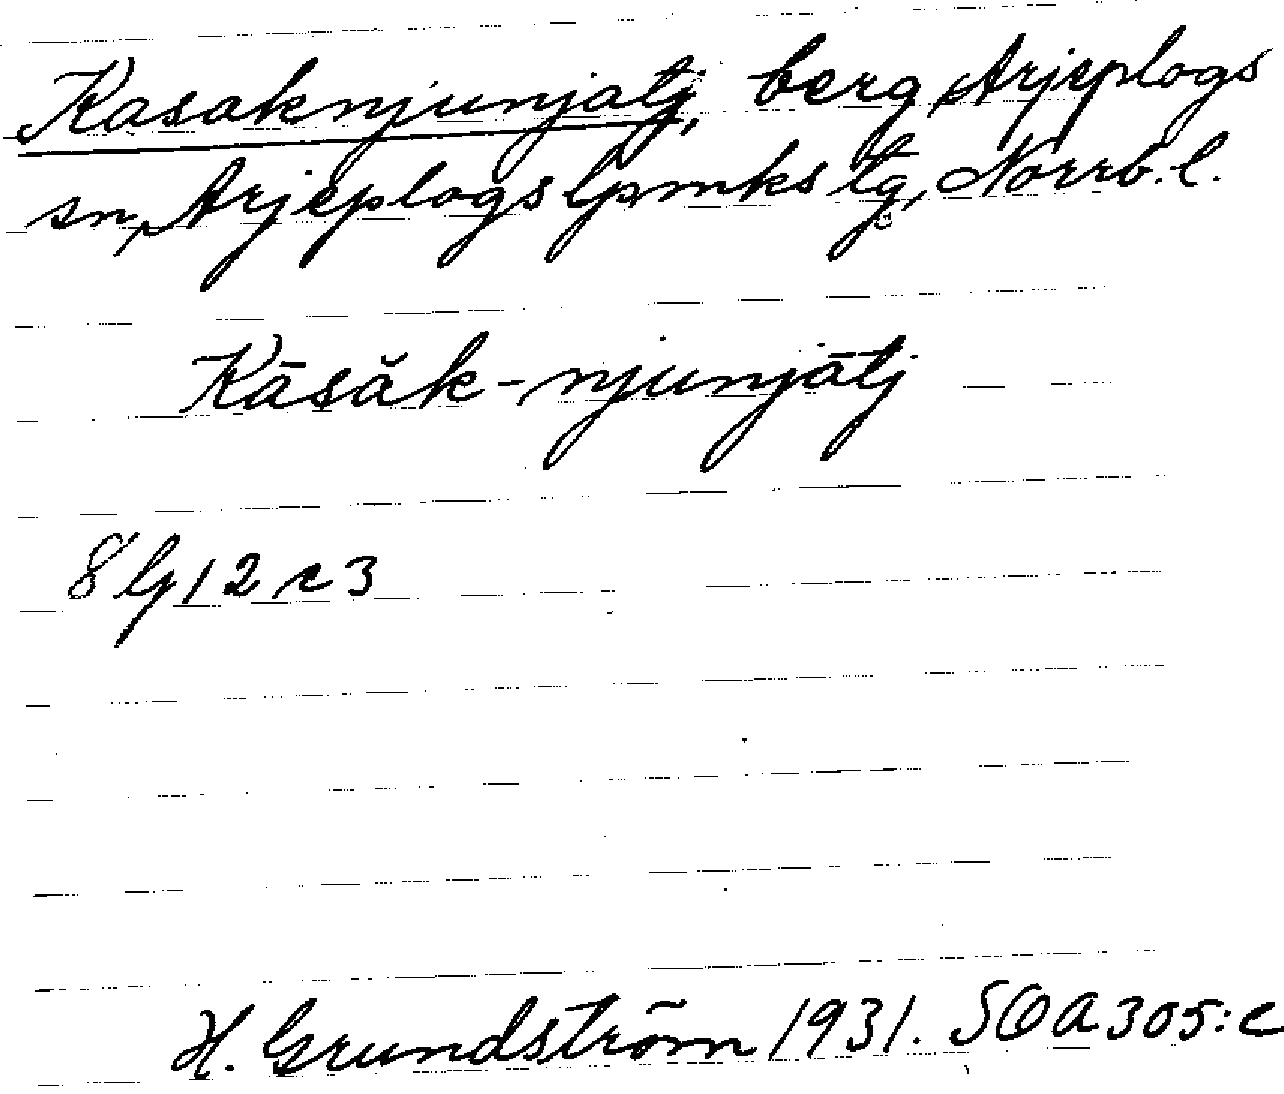 Kasaknjunjatj, berg, Arjeplogs
sn, Arjeplogs lpmks tg, Norrb. l.
Kāsăk-njunjātj
8 G 12 c 3
H. Grundström 1931. SOA 305:c